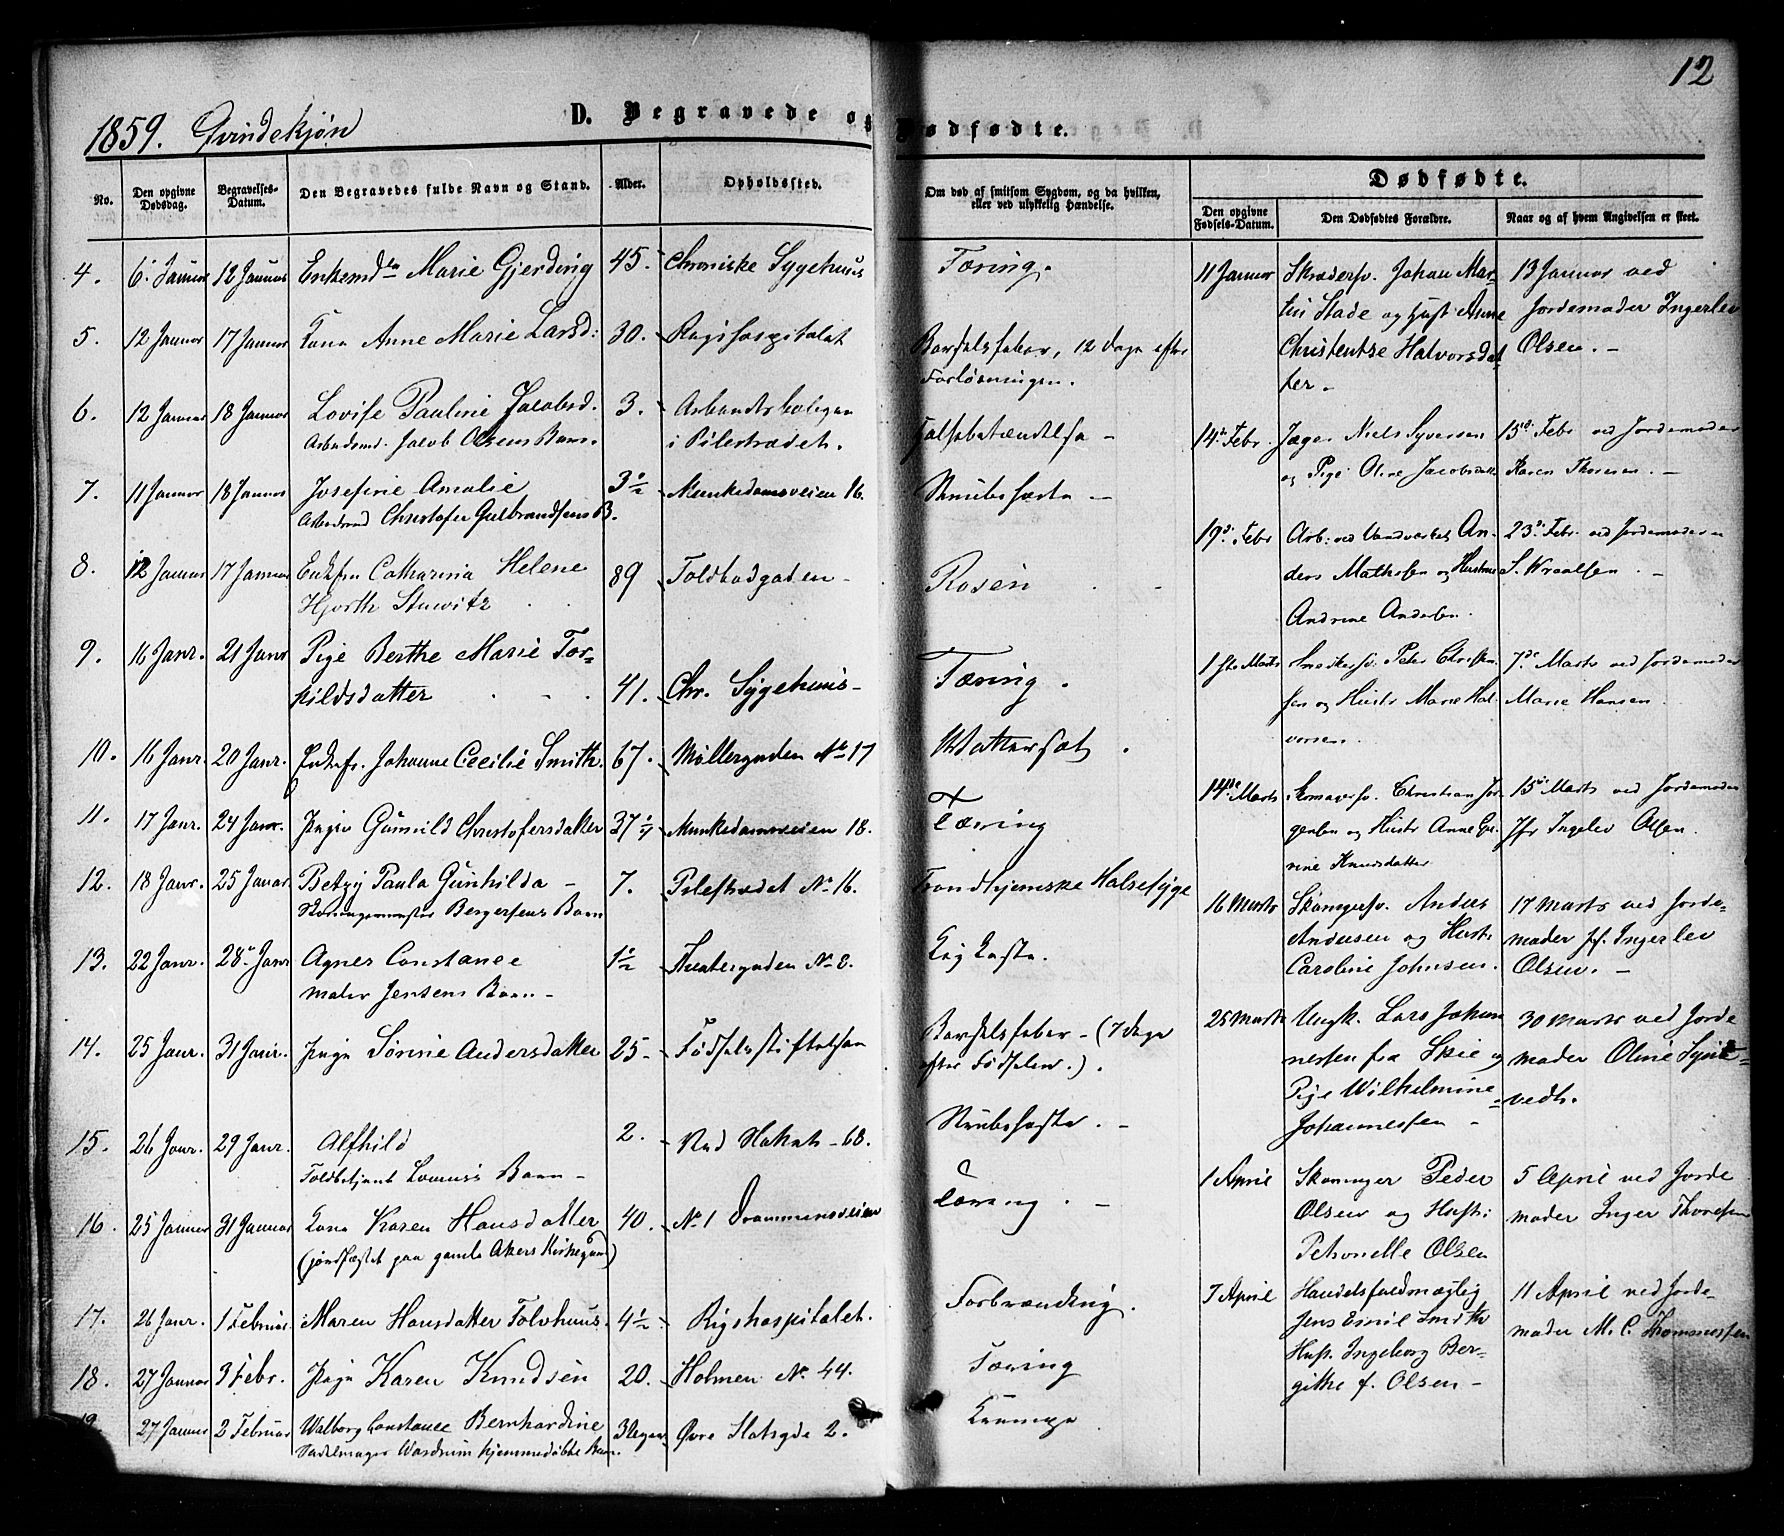 12
1859. Qvindekjøn
D. Begravede og Dødfødte.
No.
Den opgivne Dødsdag.
Begravelses-Datum.
Den Begravedes fulde Navn og Stand.
Alder.
Opholdssted.
Om død af smitsom Sygdom, og da hvilken, eller ved ulykkelig Hændelse.
Dødfødte.
Den opgivne Fødsels-Datum.
Den Dødfødtes Forældre.
Naar og af hvem Angivelsen er skeet.
4. 6 Januar 12 Januar Marie Gjerding 45. Chroniske Sygehuus Tæring.
5. 12 Januar 17 Januar Kona Anne Marie Larsd: 30. Rigshospitalet Barselsfeber, 12 Dage efter
Forløsningen.
6. 12 Januar 18 Januar Lovise Pauline Jacobsd. 3. Arbeiderboligen Halsebetændelse –
Arbeidsmd. Jacob Olsens Barn. i Pilestrædet.
7. 11 Januar 18 Januar Josefine Amalie 3 1/2 Munkedamsveien 16. Strubehoste –
Arbeidsmd Christofer Gulbrandsens B.
8. 12 Januar 17 Januar Enkefru Catharina Helene 89 Toldbodgaden – Rosen
Hjorth Stuwitz
9. 16 Janr. 21 Janr Pige Berthe Marie Tor-
kildsdatter 41. Chr. Sygehuus – Tæring.
10. 16 Janr. 20 Janr. Enkefr. Johanne Cecilie Smith. 67. Møllergaden No 17 Vattersot.
11. 17 Janr. 24 Janr. Pigen Gunild Christofersdatter 37 1/4 Munkedamsveien 18. Tæring
12. 18 Janr. 25 Januar Betzy Paula Gunhilda – 7. Pilestrædet No 16. Trondhjemske Halsesyge
Bergersens Barn
13. 22 Janr. 28 Janr Agnes Constance 1 1/2 Theatergaden No 8. Kighoste.
Maler Jensens Barn –
14. 25 Janr. 31 Janr. Pige Sørine Andersdatter 25 – Fødselsstiftelsen Barselsfeber – (7 Dage
efter Fødselen.).
15. 26 Janr. 29 Janr. Alfhild 2. Ved Slottet – 68. Strubehoste. –
Toldbetjent Barn –
16. 25 Januar 31 Januar Kone Karen Hansdatter 40. No 1 Drammensveien Tæring. –
(jordfæstet paa gamle Akers Kirkegaard)
17. 26 Janr. 1 Februar. Maren Hansdatter Tolvhuus. 4 1/2 Rigshospitalet. Forbrænding.
18. 27 Januar 3 Febr. Pige Karen Knudsen 20. Holmen No. 44. Tæring
27 Januar 2 Februar Walborg Constance Bernhardine 3 Uger Øvre Slotsgde 2. Krampe
Sadelmager Wardrum hjemmedøbte Barn.
11 Januar Skrædersv. Johan Mar- 13 Januar ved
tin Stade og Hust Anne Jordemoder Ingerlev
Christentze Halvorsdat Olsen. –
ter –
14 Febr. Jæger Niels Syversen 15 Febr ved Jordemoder
og Pige Oline Jacobsdatt Karen Thoresen. –
19 Febr Arb: ved Vandværket An- 23 Febr. ved Jordemoderen
ders Mathisen og Hustrue S. Wraalsen. –
Andrine Andersen.
1ste Marts Snedkersv. Peter Christen- 7de Marts ved Jordemoder
sen og Hustr Marie Hal- Marie Hansen
vorsen.
14de Marts Skomagersv. Christian Jør- 15 Marts ved Jordemoder
gensen og Hustr Anne Jfr Ingelev Olsen.
rine Knudsdatter
16 Marts Skomgersv. Anders 17 Marts ved Jorde-
Andersen og Hustr: moder Jf. Ingerlev
Caroline Johnsen. Olsen. –
25 Marts Ungk. Lars Johan- 30 Marts ved Jorde
nessen fra Skie og moder Oline
Pige Wilhelmine
Johannessen –
1 April Skomager Peder 5 April ved Jorde
Olsen og Hustr: moder Inger Thoresen
Petronelle Olsen
7 April Handelsfuldmægtig 11 April ved Jorde-
Jens Emil Smith moder M. C. Thommesen
Hust. Ingeborg Ber-
gitte f. Olsen –